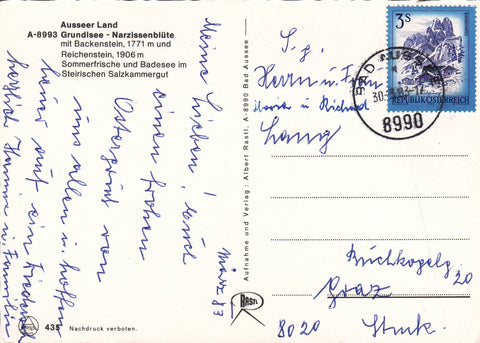 Ausseer Land
A-8993 Grundlsee - Narzissenblüte
mit Backenstein, 1771 m und
Reichenstein, 1906 m
Sommerfrische und Badesee im
Steirischen Salzkammergut
Meine Lieben! Euch
einen frohen
Ostergruß von
uns allen u. hoffen
immer auf ein Wiederseh
herzlich Hanna u. Familie
März 83
435 Nachdruck verboten.
Aufnahme und Verlag: Albert Rastl, A-8990 Bad Aussee
RASTL
3 S
REPUBLIK ÖSTERREICH
BAD AUSSEE
8990
S. g.
Herrn u. Frau
Maria u. Richard
Lang
Buchkogelg
20
Graz
8020 Stmk.